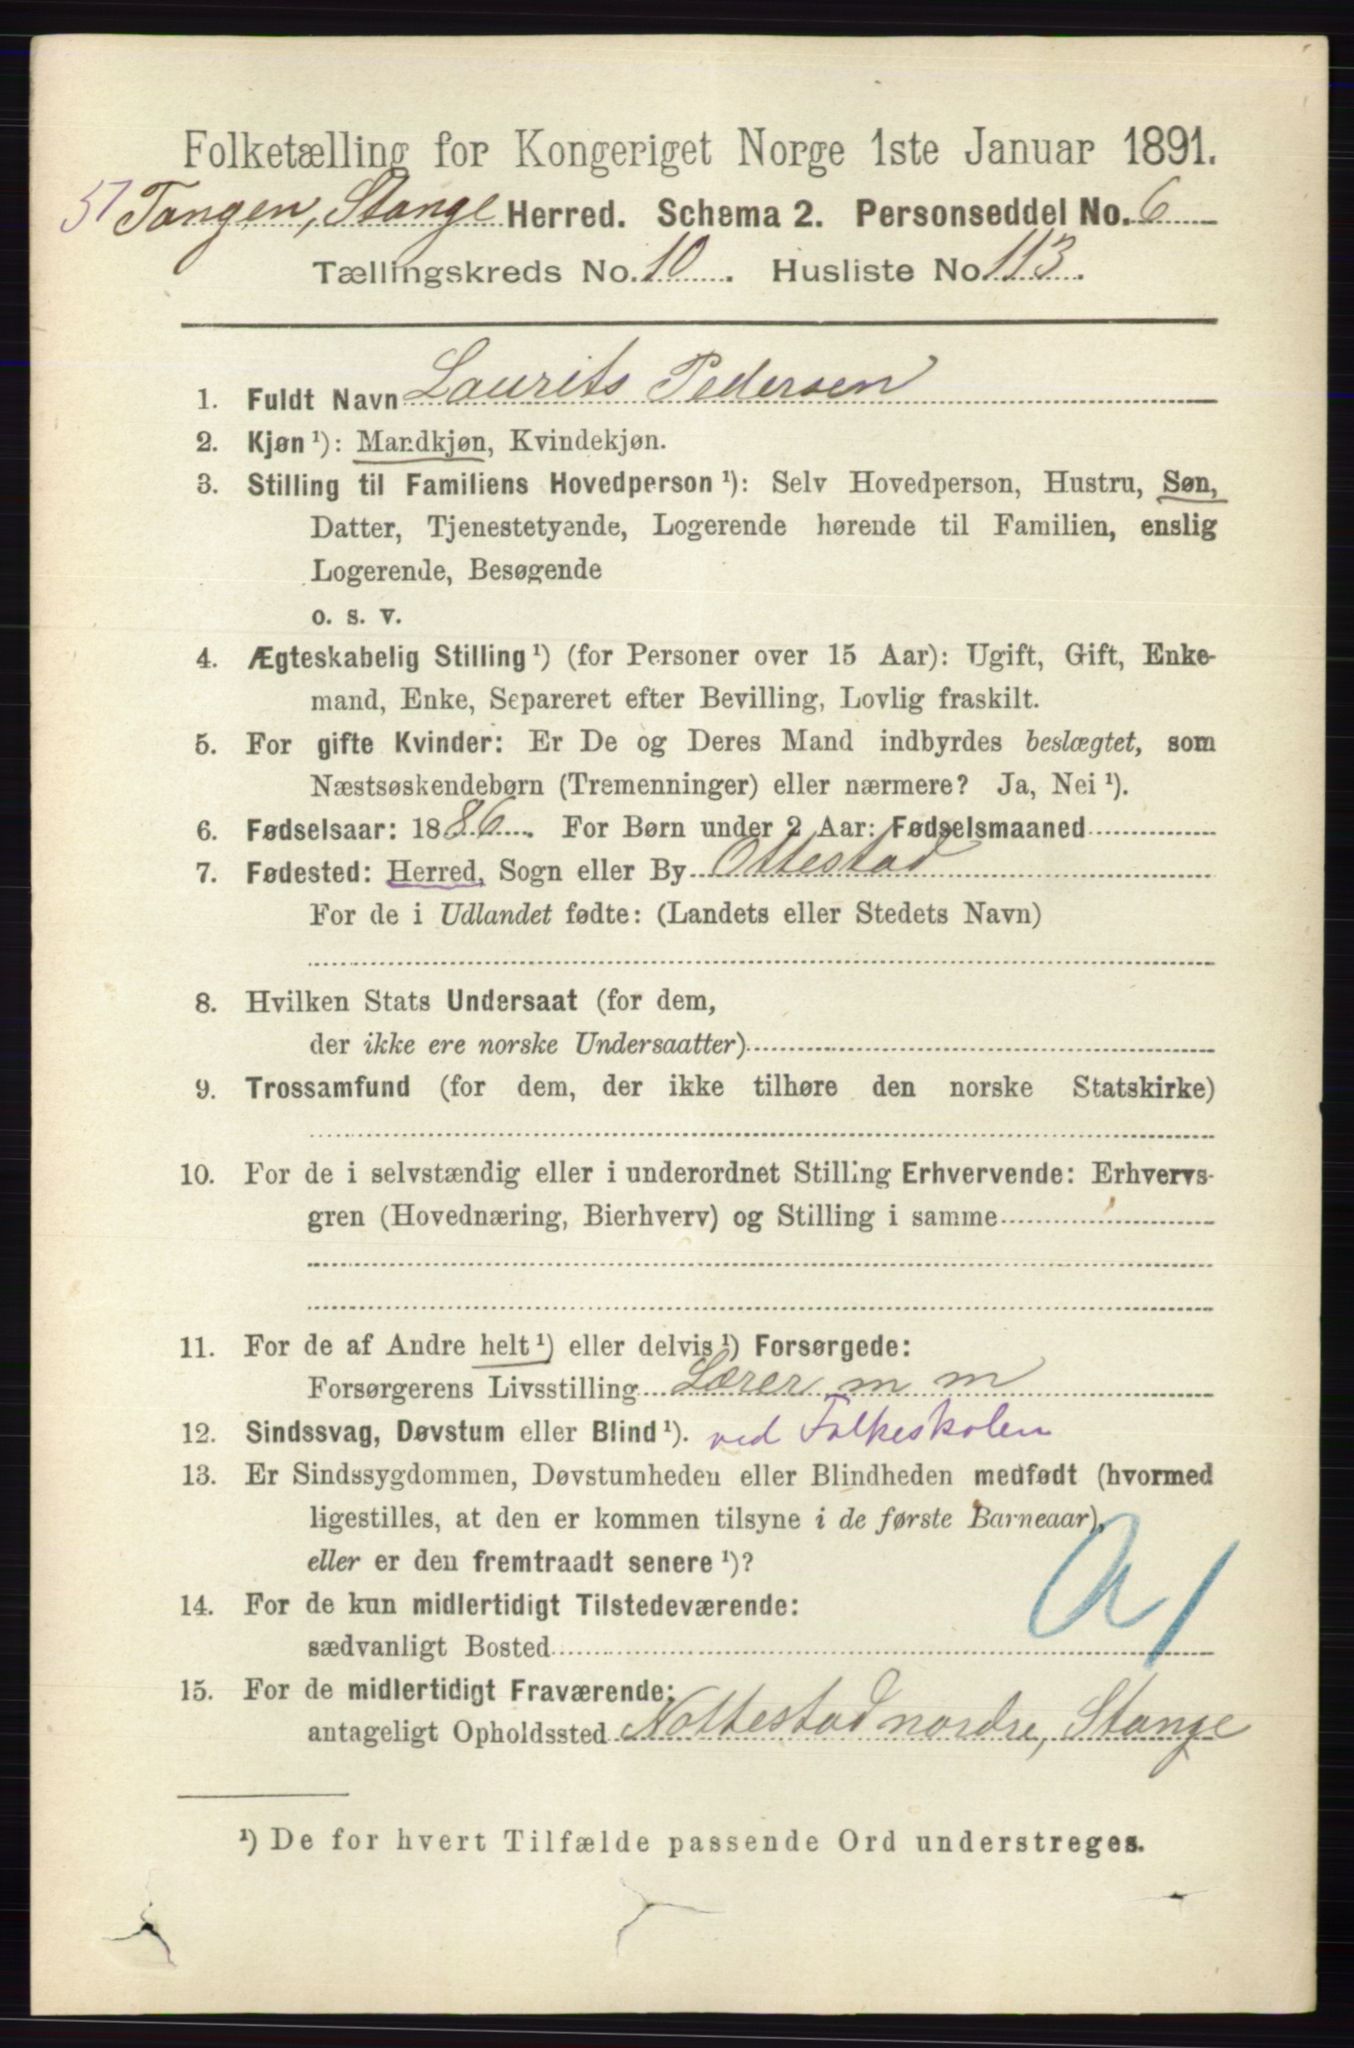 Folketælling for Kongeriget Norge 1ste Januar 1891.
57 Tangen, Stange Herred. Schema 2. Personseddel No. 6
Tællingskreds No. 10. Husliste No. 113.
1. Fuldt Navn Laurits Pedersen
2. Kjøn ¹): Mandkjøn, Kvindekjøn.
3. Stilling til Familiens Hovedperson ¹): Selv Hovedperson, Hustru, Søn,
Datter, Tjenestetyende, Logerende hørende til Familien, enslig
Logerende, Besøgende
o. s. v.
4. Ægteskabelig Stilling ¹) (for Personer over 15 Aar): Ugift, Gift, Enke-
mand, Enke, Separeret efter Bevilling, Lovlig fraskilt.
5. For gifte Kvinder: Er De og Deres Mand indbyrdes beslægtet, som
Næstsøskendebørn (Tremenninger) eller nærmere? Ja, Nei ¹).
6. Fødselsaar: 1886. For Børn under 2 Aar: Fødselsmaaned
7. Fødested: Herred, Sogn eller By Ottestad
For de i Udlandet fødte: (Landets eller Stedets Navn)
8. Hvilken Stats Undersaat (for dem,
der ikke ere norske Undersaatter)
9. Trossamfund (for dem, der ikke tilhøre den norske Statskirke)
10. For de i selvstændig eller i underordnet Stilling Erhvervende: Erhvervs-
gren (Hovednæring, Bierhverv) og Stilling i samme
11. For de af Andre helt ¹) eller delvis ¹) Forsørgede:
Forsørgerens Livsstilling Lærer m m
12. Sindssvag, Døvstum eller Blind ¹). ved Folkeskolen
13. Er Sindssygdommen, Døvstumheden eller Blindheden medfødt (hvormed
ligestilles, at den er kommen tilsyne i de første Barneaar),
eller er den fremtraadt senere ¹)?
14. For de kun midlertidigt Tilstedeværende:
sædvanligt Bosted
15. For de midlertidigt Fraværende:
antageligt Opholdssted Nottestad nordre, Stange
¹) De for hvert Tilfælde passende Ord understreges.